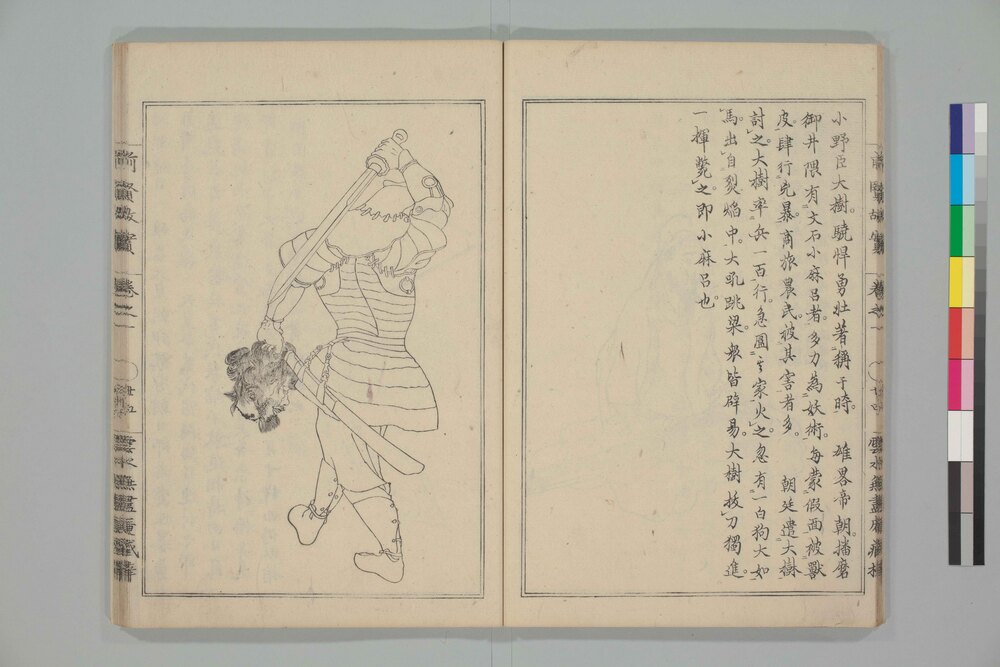 小野臣大樹。驍悍勇壯著稱于時。 雄畧帝朝。播磨
御井隈有文石小麻呂者。多力為妖術。每蒙假面被獸
皮。肆行兇暴。商旅農民被其害者多。 朝廷遣大樹
討之。大樹率兵一百行。急圍其家火之。忽有一白狗大如
馬。出自烈焰中。大吼跳梁。衆皆辟易。大樹拔刀獨進。
一揮斃之。即小麻呂也。
前賢故實
卷之一